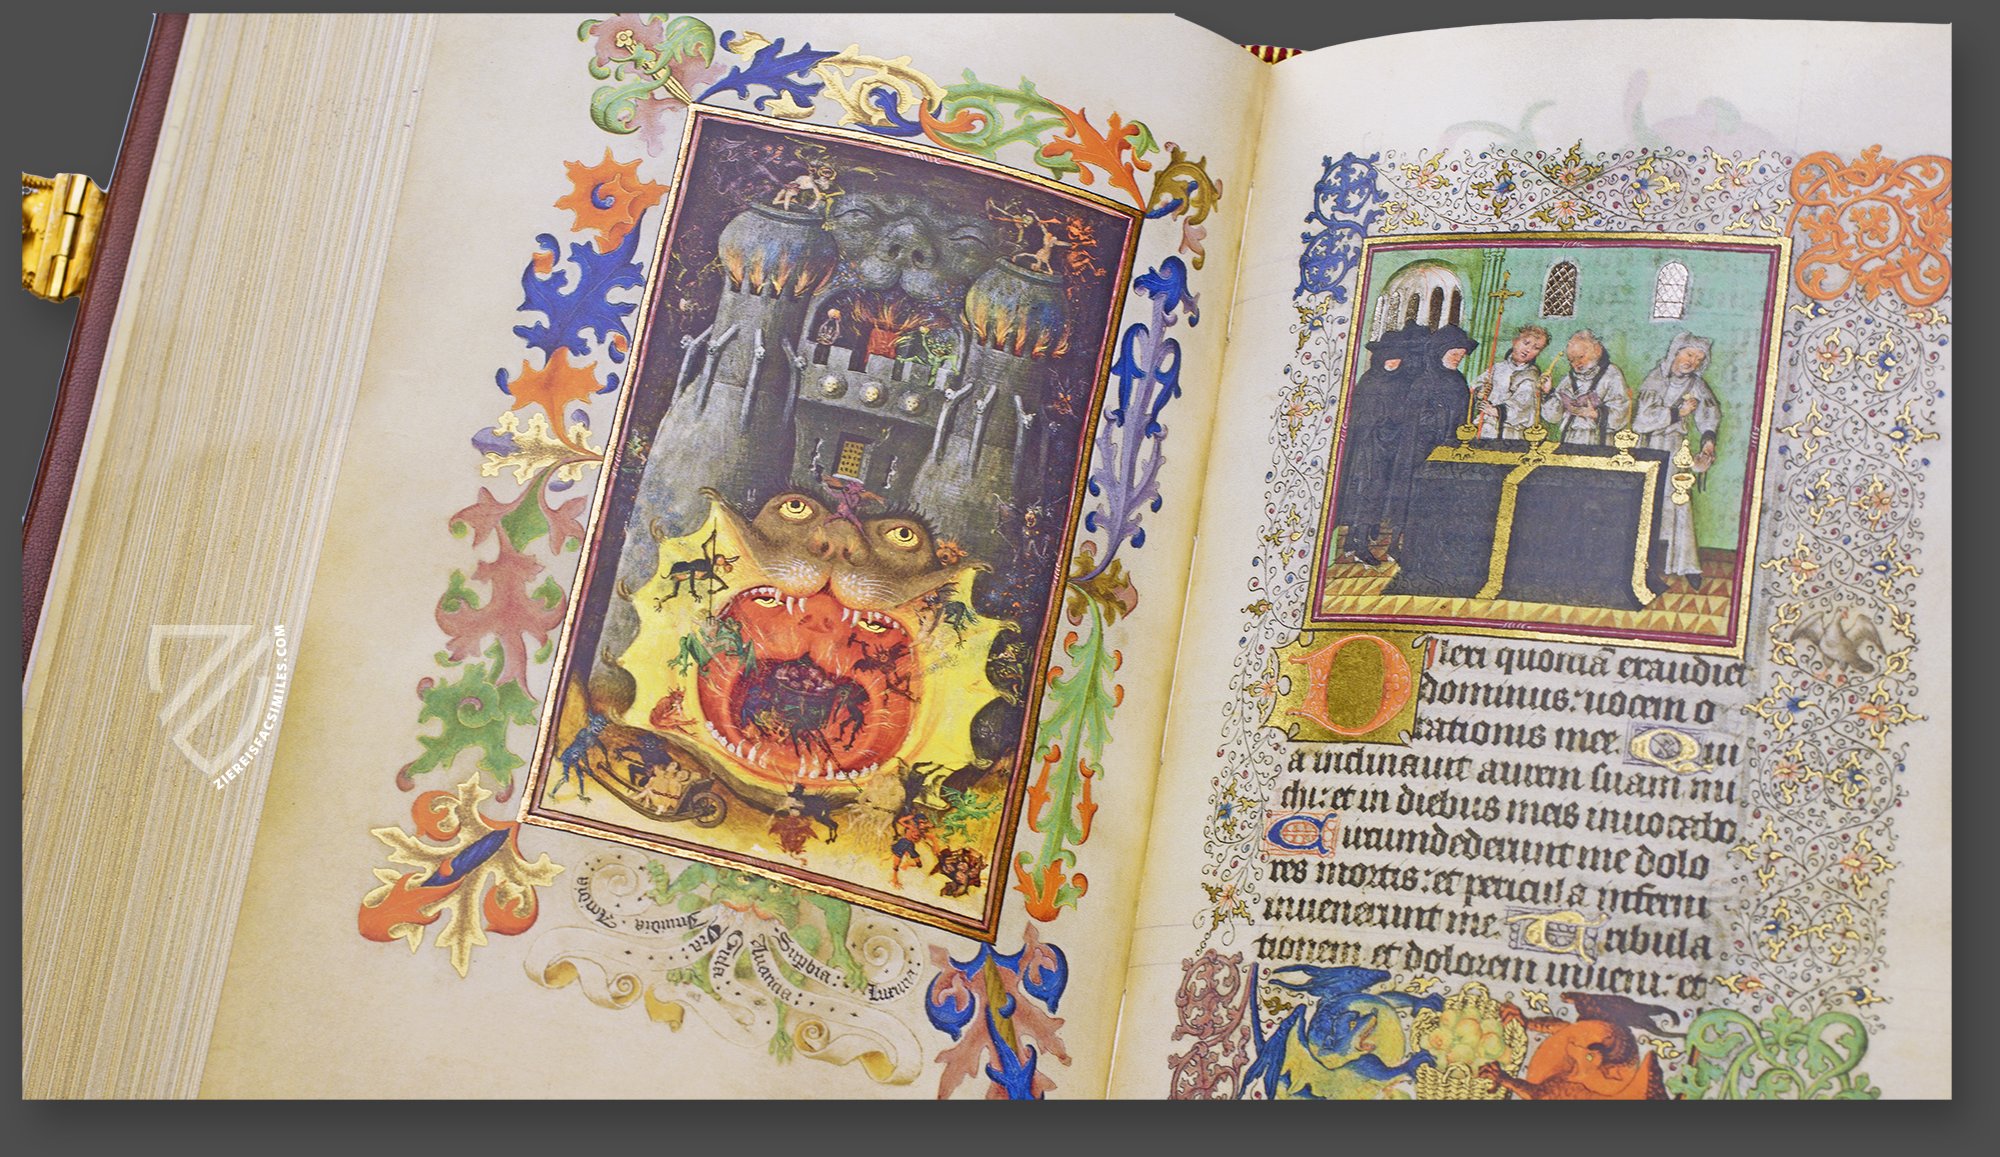 Accidia
Inuidia
Ira
Gula
Auaricia
Supbia
Luxuria
Dilexi quoniā exaudiet
dominus: uocem o
rationis mee. Qui
a inclinauit aurem suam mi
chi: et in diebus meis inuocabo
Circumdederunt me dolo
res mortis: et pericula inferni
inuenerunt me. Tribula
tionem et dolorem inueni: et
ZIEREISFACSIMILES.COM